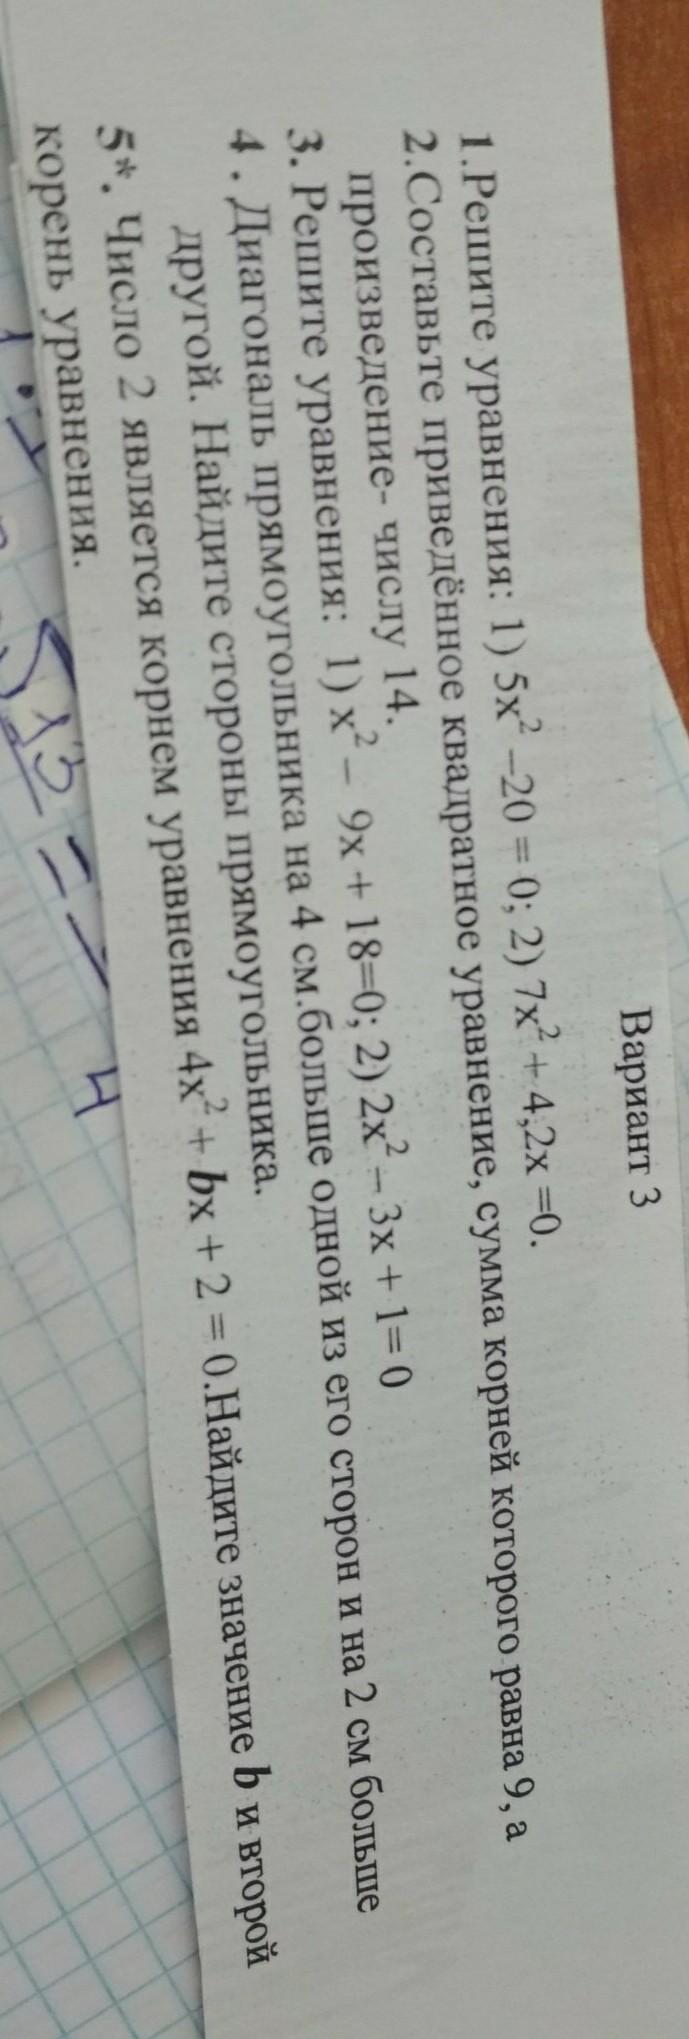 Вариант 3
1.Решите уравнения: 1) 5x² –20 = 0; 2) 7x² + 4,2x =0.
2.Составьте приведённое квадратное уравнение, сумма корней которого равна 9, а
произведение- числу 14.
3. Решите уравнения: 1) x² – 9x + 18=0; 2) 2x² – 3x + 1= 0
4 . Диагональ прямоугольника на 4 см.больше одной из его сторон и на 2 см больше
другой. Найдите стороны прямоугольника.
5*. Число 2 является корнем уравнения 4x² + bx + 2 = 0.Найдите значение b и второй
корень уравнения.